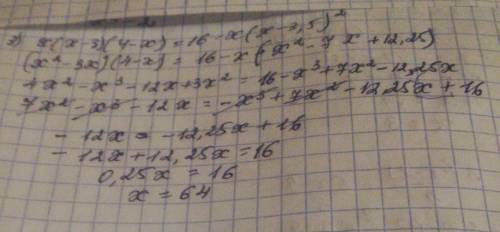 2) x(x-3)(4-x) = 16 - x(x-3,5)²
(x²-3x)(4-x) = 16 - x(x²-7x+12,25)
4x²-x³-12x+3x² = 16-x³+7x²-12,25x
7x²-x³-12x = -x³+7x²-12,25x+16
-12x = -12,25x+16
-12x+12,25x=16
0,25x = 16
x = 64